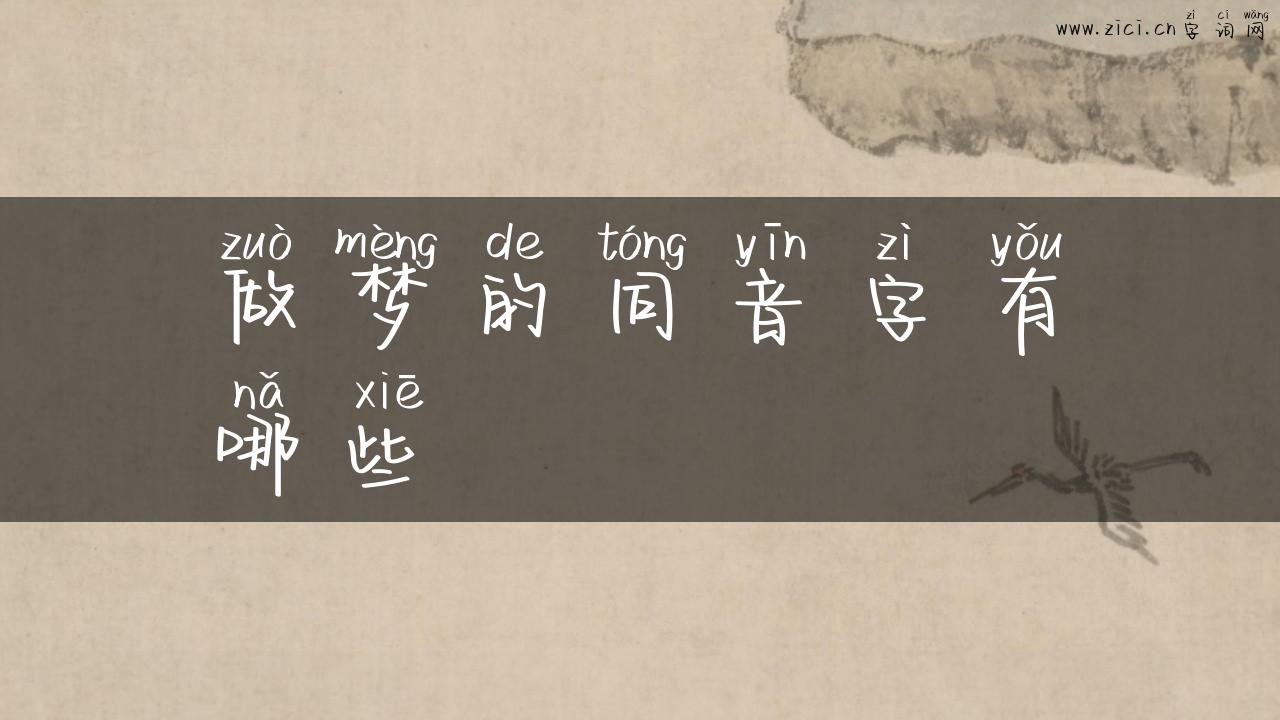 zì cí wǎng
www.zici.cn 字 词 网
zuò mèng de tóng yīn zì yǒu
做 梦 的 同 音 字 有
nǎ xiē
哪 些